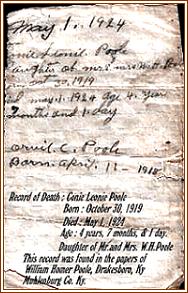 May 1, 1924
Leonie Poole
daughter of mr & mrs W. H. Po
Born oct 30, 1919
Died may 1. 1924 age 4. years
7 months and 1 day
orvil C. Poole
Born. april. 12 - 191
Record of Death : Conie Leonie Poole
Born : October 30, 1919
Died : May 1, 1924
Age : 4 years, 7 months, & 1 day.
Daughter of Mr. and Mrs. W.H.Poole
This record was found in the papers of
William Homer Poole, Drakesboro, Ky
Muhlenburg Co. Ky.